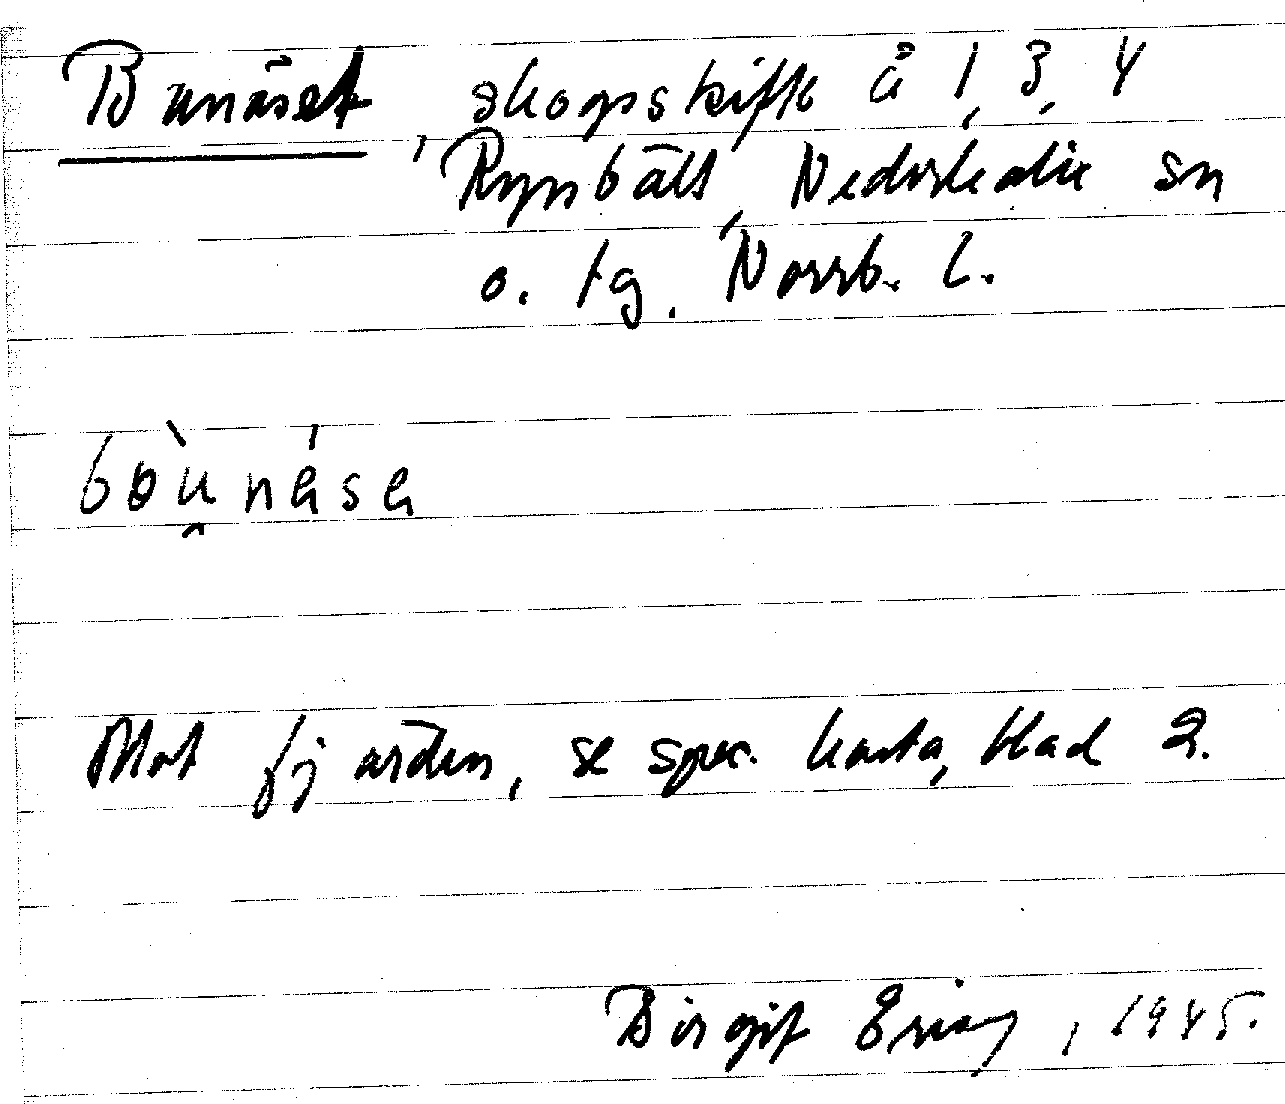 Bunäset, skogsskifte å 1, 3, 4
Rynbält, Nederkalix sn
o. tg. Norrb. l.
bòu̯nása
Mot fjärden, se spec. karta, blad 2.
Birgit Eriз, 1945.